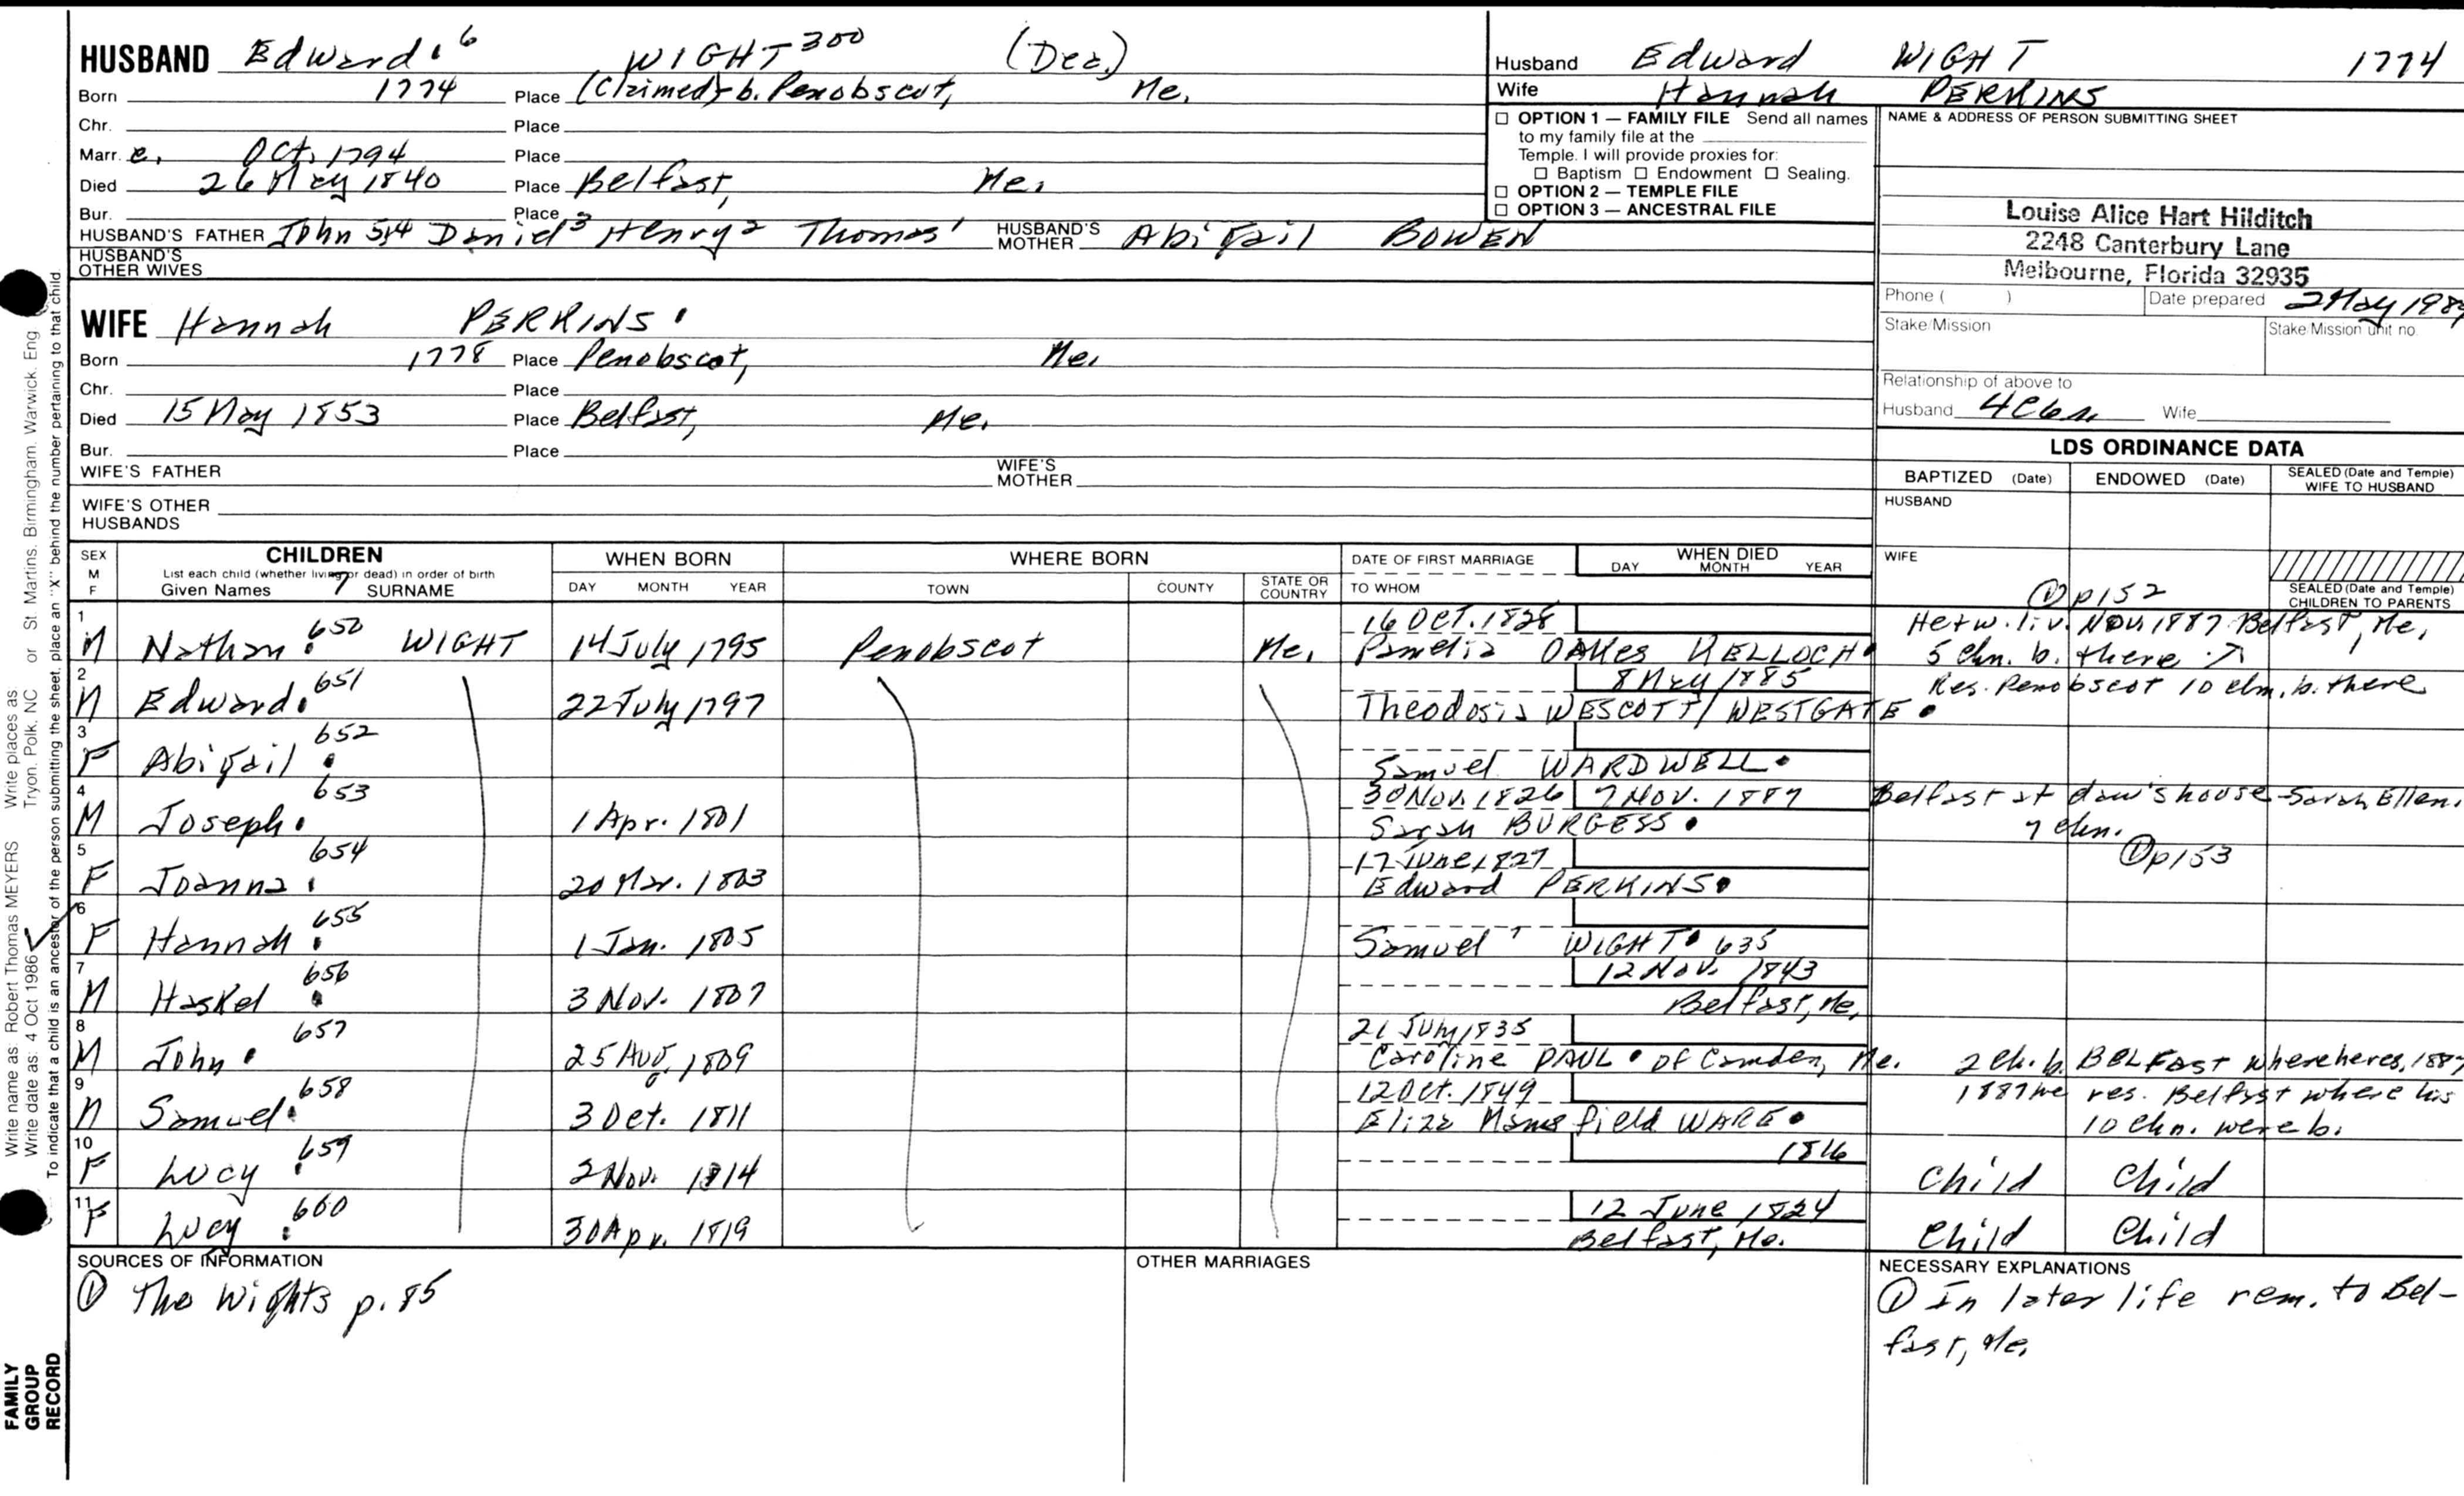 HUSBAND Edward 6 WIGHT 300 (Dea.)
Born 1774 Place (Claimed) b. Penobscot, Me.
Chr. Place
Marr. c. Oct. 1794 Place
Died 26 May 1840 Place Belfast, Me.
Bur. Place
HUSBAND'S FATHER John 5,4 Daniel 3 Henry 2 Thomas 1 HUSBAND'S MOTHER Abigail BOWEN
HUSBAND'S OTHER WIVES
WIFE Hannah PERKINS
Born 1778 Place Penobscot, Me.
Chr. Place
Died 15 May 1853 Place Belfast, Me.
Bur. Place
WIFE'S FATHER WIFE'S MOTHER
WIFE'S OTHER HUSBANDS
Husband Edward WIGHT 1774
Wife Hannah PERKINS
☐ OPTION 1 — FAMILY FILE Send all names
to my family file at the
Temple. I will provide proxies for:
☐ Baptism ☐ Endowment ☐ Sealing.
☐ OPTION 2 — TEMPLE FILE
☐ OPTION 3 — ANCESTRAL FILE
NAME & ADDRESS OF PERSON SUBMITTING SHEET
Louise Alice Hart Hilditch
2248 Canterbury Lane
Melbourne, Florida 32935
Phone ( ) Date prepared 2 May 1989
Stake/Mission Stake/Mission unit no.
Relationship of above to
Husband Wife
LDS ORDINANCE DATA
BAPTIZED (Date) ENDOWED (Date) SEALED (Date and Temple) WIFE TO HUSBAND
HUSBAND
WIFE
① p152
SEALED (Date and Temple) CHILDREN TO PARENTS
SEX M F
CHILDREN
List each child (whether living or dead) in order of birth
Given Names SURNAME
WHEN BORN DAY MONTH YEAR
WHERE BORN TOWN COUNTY STATE OR COUNTRY
DATE OF FIRST MARRIAGE
TO WHOM
WHEN DIED DAY MONTH YEAR
1 M Nathan 650 WIGHT 14 July 1795 Penobscot Me. 16 Oct. 1828
Pamelia OAKES KELLOCH
He & w. liv. Nov. 1887 Belfast, Me.
5 chn. b. there
2 M Edward 651 22 July 1797 8 May 1885
Theodosia WESCOTT/WESTGATE
Res. Penobscot 10 chn. b. there
3 F Abigail 652
Samuel WARDWELL
4 M Joseph 653 1 Apr. 1801 30 Nov. 1826 7 Nov. 1887
Sarah BURGESS
Belfast at dau's house - Sarah Ellen.
7 chn.
① p153
5 F Joanna 654 20 Mar. 1803 17 June 1827
Edward PERKINS
6 F Hannah 655 1 Jan. 1805
Samuel 7 WIGHT 635
7 M Haskel 656 3 Nov. 1807 12 Nov. 1843
Belfast, Me.
8 M John 657 25 Aug. 1809 21 July 1835
Caroline PAUL of Camden, Me. 2 ch. b. BELFAST where he res. 1887
9 M Samuel 658 3 Oct. 1811 12 Oct. 1849
Eliza Mansfield WARE
1887 he res. Belfast where his
10 chn. were b.
10 F Lucy 659 2 Nov. 1814 1816
Child Child
11 F Lucy 660 30 Apr. 1819 12 June 1824
Belfast, Me.
Child Child
SOURCES OF INFORMATION
① The Wights p. 85
OTHER MARRIAGES
NECESSARY EXPLANATIONS
① In later life rem. to Bel-
fast, Me.
Write name as: Robert Thomas MEYERS Write places as Tryon, Polk, NC or St. Martins, Birmingham, Warwick, Eng
Write date as: 4 Oct 1986
To indicate that a child is an ancestor of the person submitting the sheet, place an "X" behind the number pertaining to that child
FAMILY
GROUP
RECORD